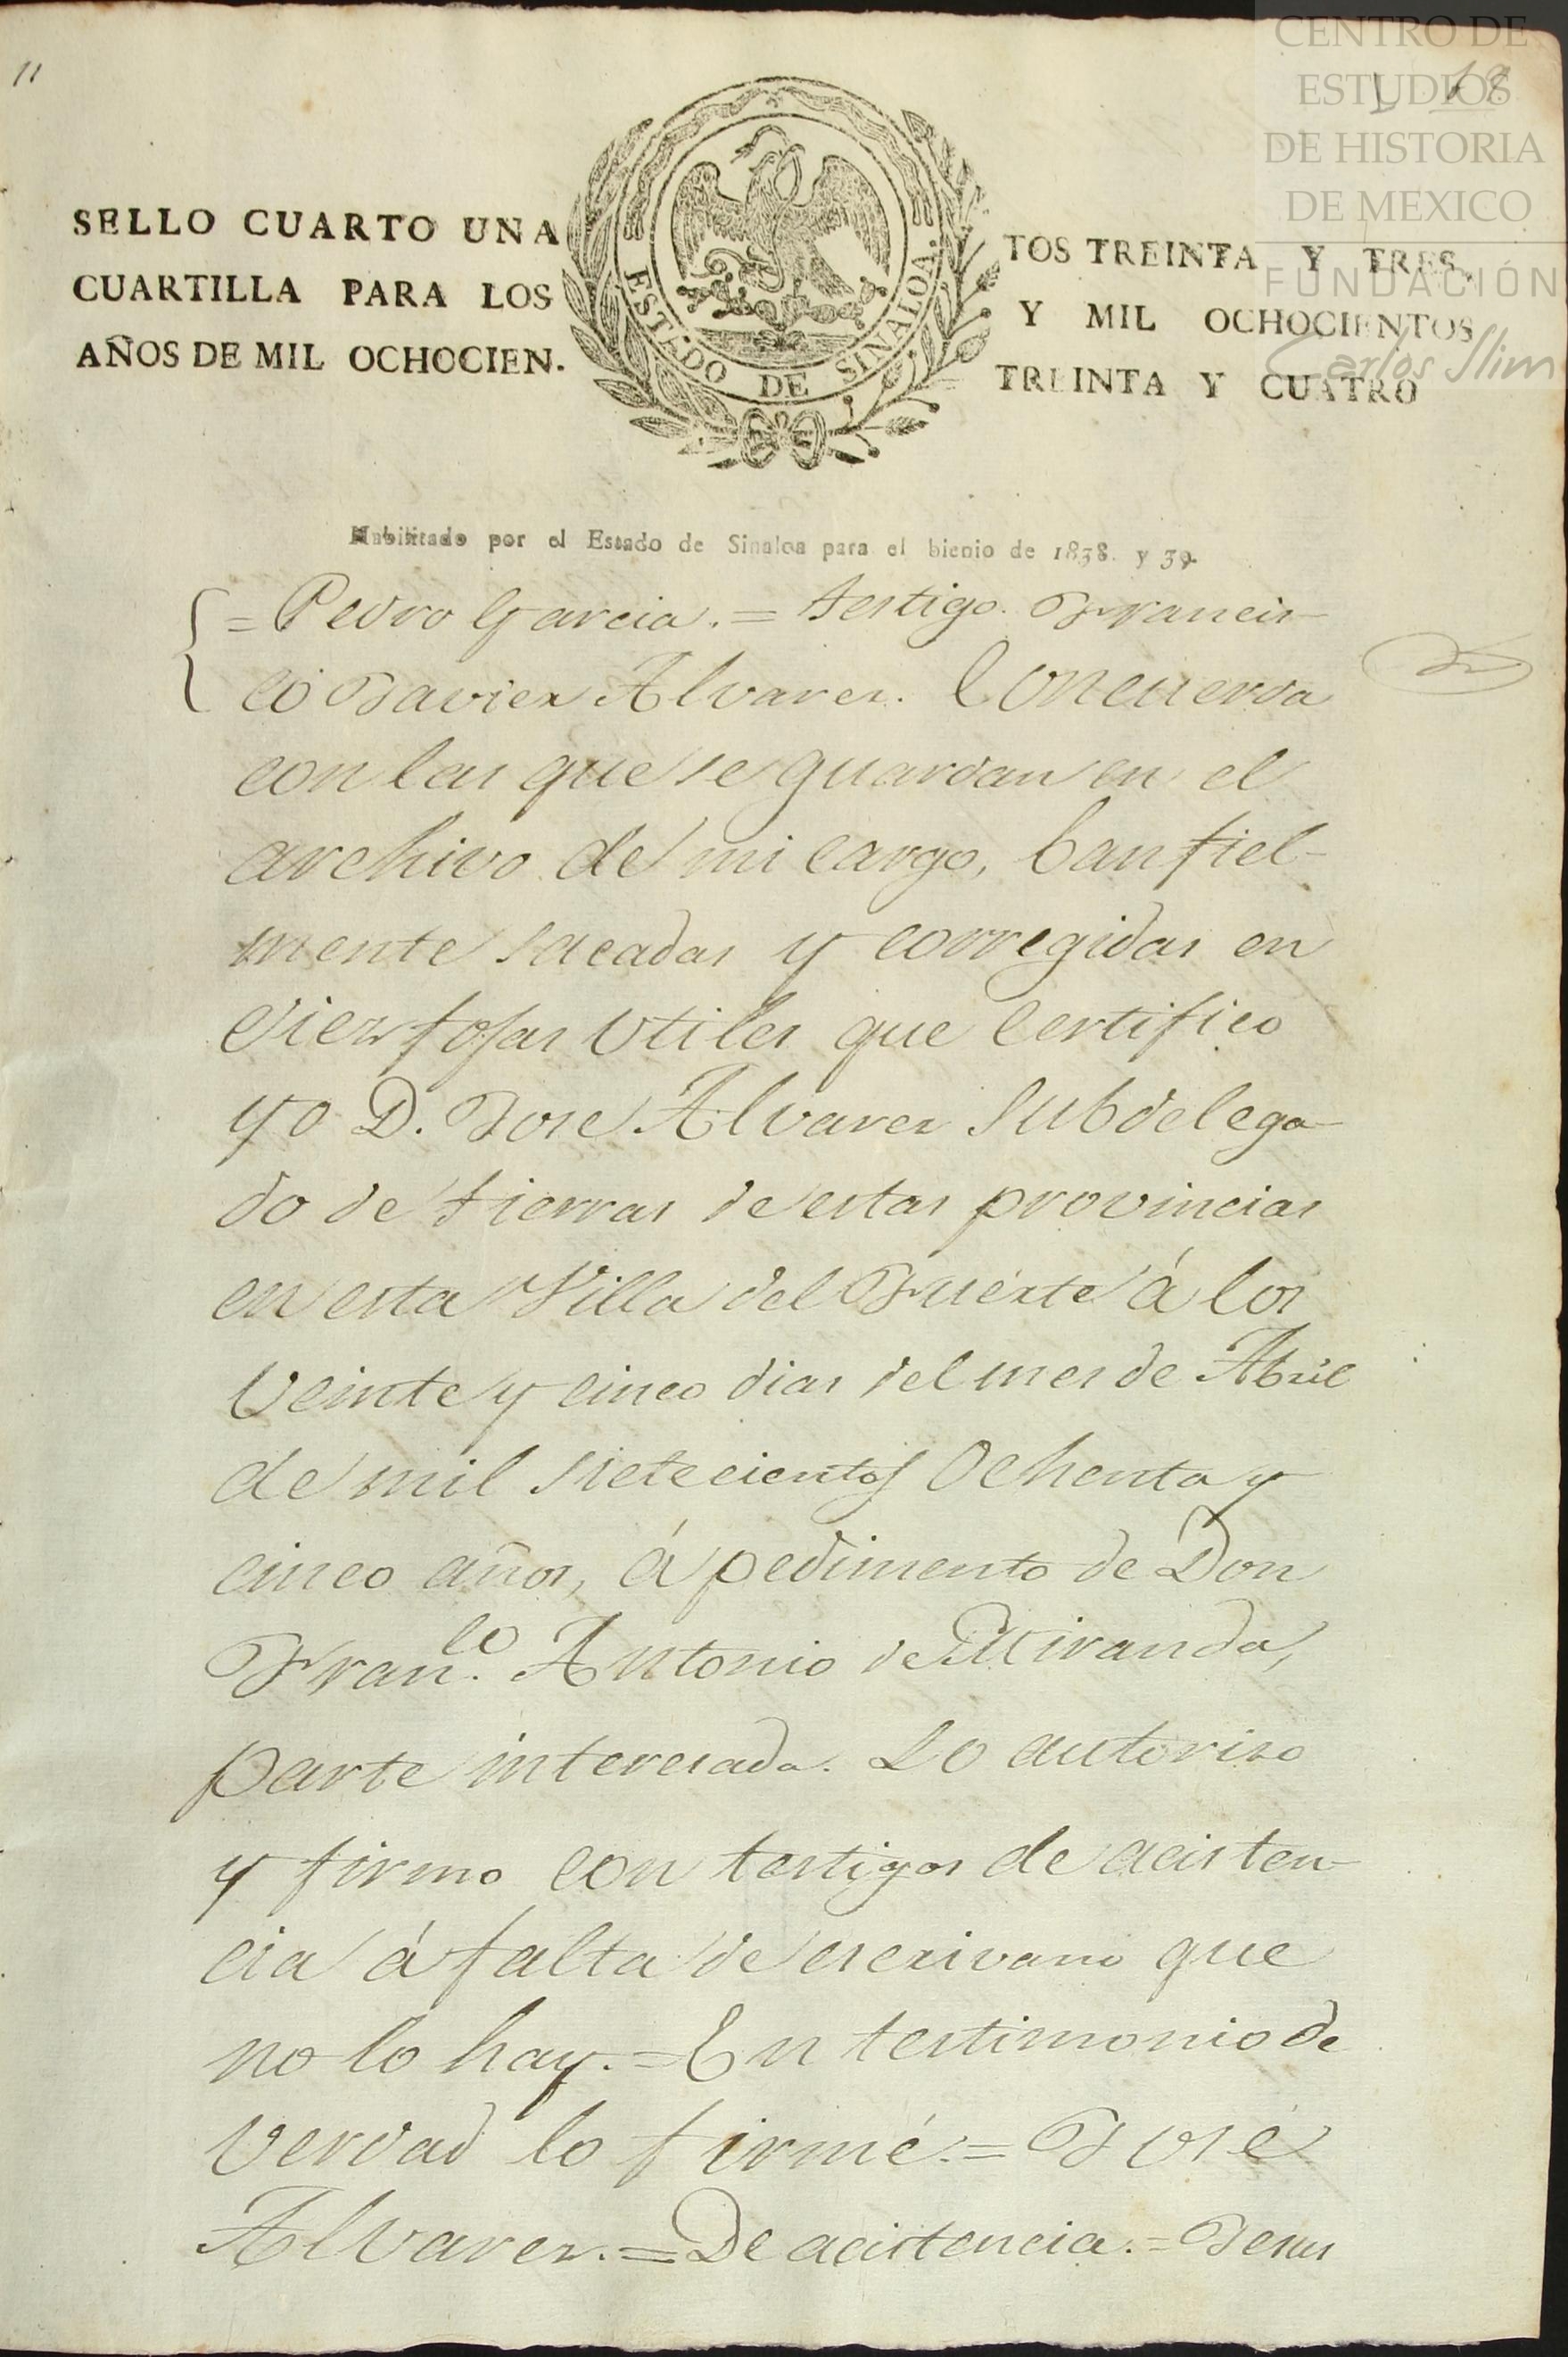 11
L 68
CENTRO DE
ESTUDIOS
DE HISTORIA
DE MEXICO
FUNDACIÓN
Carlos Slim
SELLO CUARTO UNA
CUARTILLA PARA LOS
AÑOS DE MIL OCHOCIEN.
ESTADO DE SINALOA.
TOS TREINTA Y TRES,
Y MIL OCHOCIENTOS
TREINTA Y CUATRO
Habilitado por el Estado de Sinaloa para el bienio de 1838. y 39.
= Pedro Garcia. = testigo. Francis-
co Javier Alvarez. Concuerda
con las que se guardan en el
archivo de mi cargo, ban fiel-
mente sacadas y corregidas en
diez fojas utiles que certifico
yo D. Jose Alvarez Subdelega-
do de tierras de estas provincias
en esta Villa del Fuerte á los
veinte y cinco dias del mes de Abril
de mil sietecientos ochenta y
cinco años, á pedimento de Don
Fran.co Antonio de Miranda,
parte interesada. Lo autoriso
y firmo con testigos de acisten-
cia á falta de escrivano que
no lo hay. = En testimonio de
verdad lo firmé. = José
Alvarez. = De acistencia. = Jesus